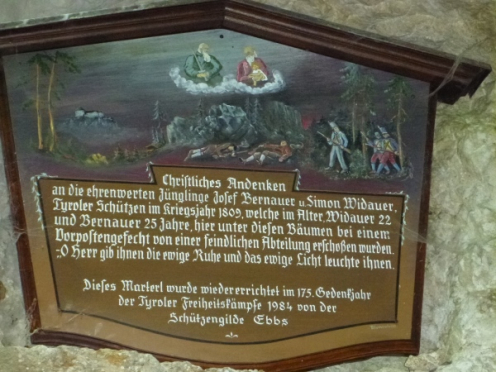 Christliches Andenken
an die ehrenwerten Jünglinge Josef Bernauer u. Simon Widauer,
Tyroler Schützen im Kriegsjahr 1809, welche im Alter, Widauer 22
und Bernauer 25 Jahre, hier unter diesen Bäumen bei einem
Vorpostengefecht von einer feindlichen Abteilung erschoßen wurden.
O Herr gib ihnen die ewige Ruhe und das ewige Licht leuchte ihnen.
Dieses Marterl wurde wiedererrichtet im 175. Gedenkjahr
der Tyroler Freiheitskämpfe 1984 von der
Schützengilde Ebbs